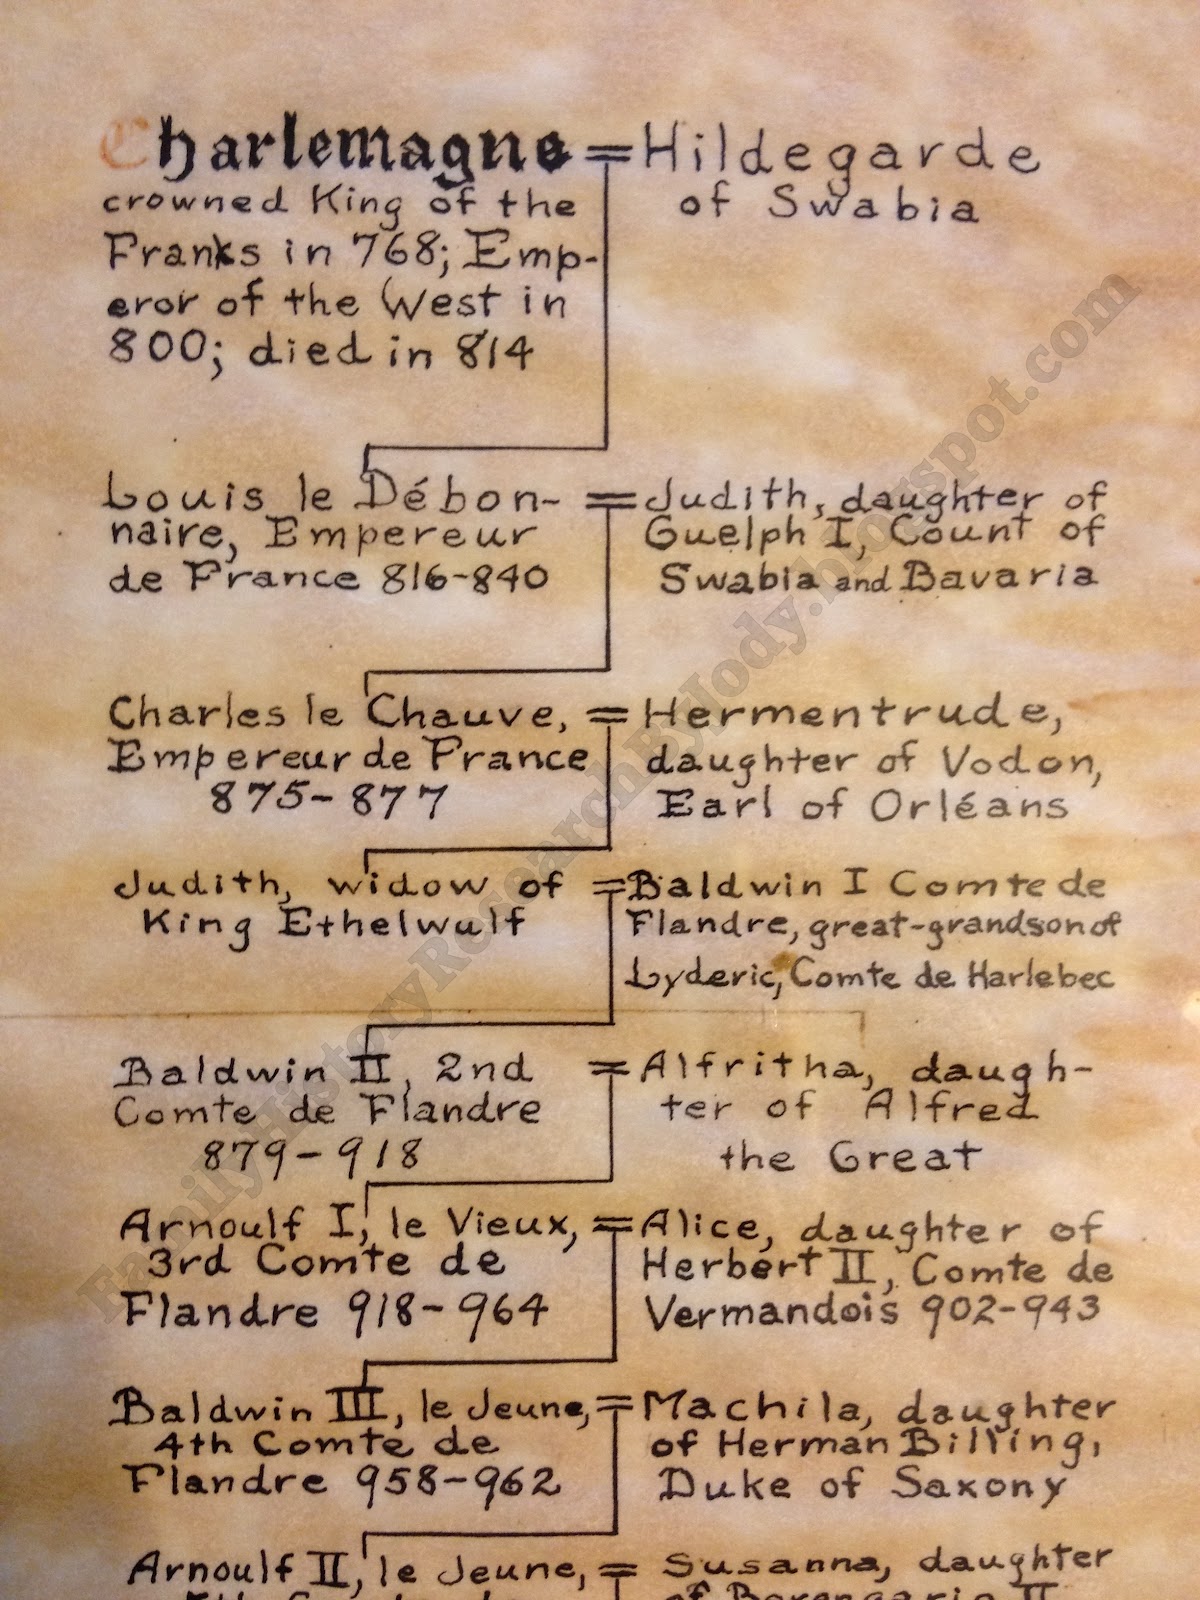 Charlemagne = Hildegarde
crowned King of the
of Swabia
Franks in 768; Emp-
eror of the West in
800; died in 814
Louis le Débon- = Judith, daughter of
naire, Empereur
Guelph I, Count of
de France 816-840
Swabia and Bavaria
Charles le Chauve, = Hermentrude,
Empereur de France
daughter of Vodon,
875-877
Earl of Orléans
Judith, widow of = Baldwin I Comte de
King Ethelwulf
Flandre, great-grandson of
Lyderic, Comte de Harlebec
Baldwin II, 2nd = Alfritha, daugh-
Comte de Flandre
ter of Alfred
879-918
the Great
Arnoulf I, le Vieux, = Alice, daughter of
3rd Comte de
Herbert II, Comte de
Flandre 918-964
Vermandois 902-943
Baldwin III, le Jeune, = Machila, daughter
4th Comte de
of Herman Billing,
Flandre 958-962
Duke of Saxony
Arnoulf II, le Jeune, = Susanna, daughter
5th Comte de
of Berengario II
FamilyHistoryResearchByJody.blogspot.com